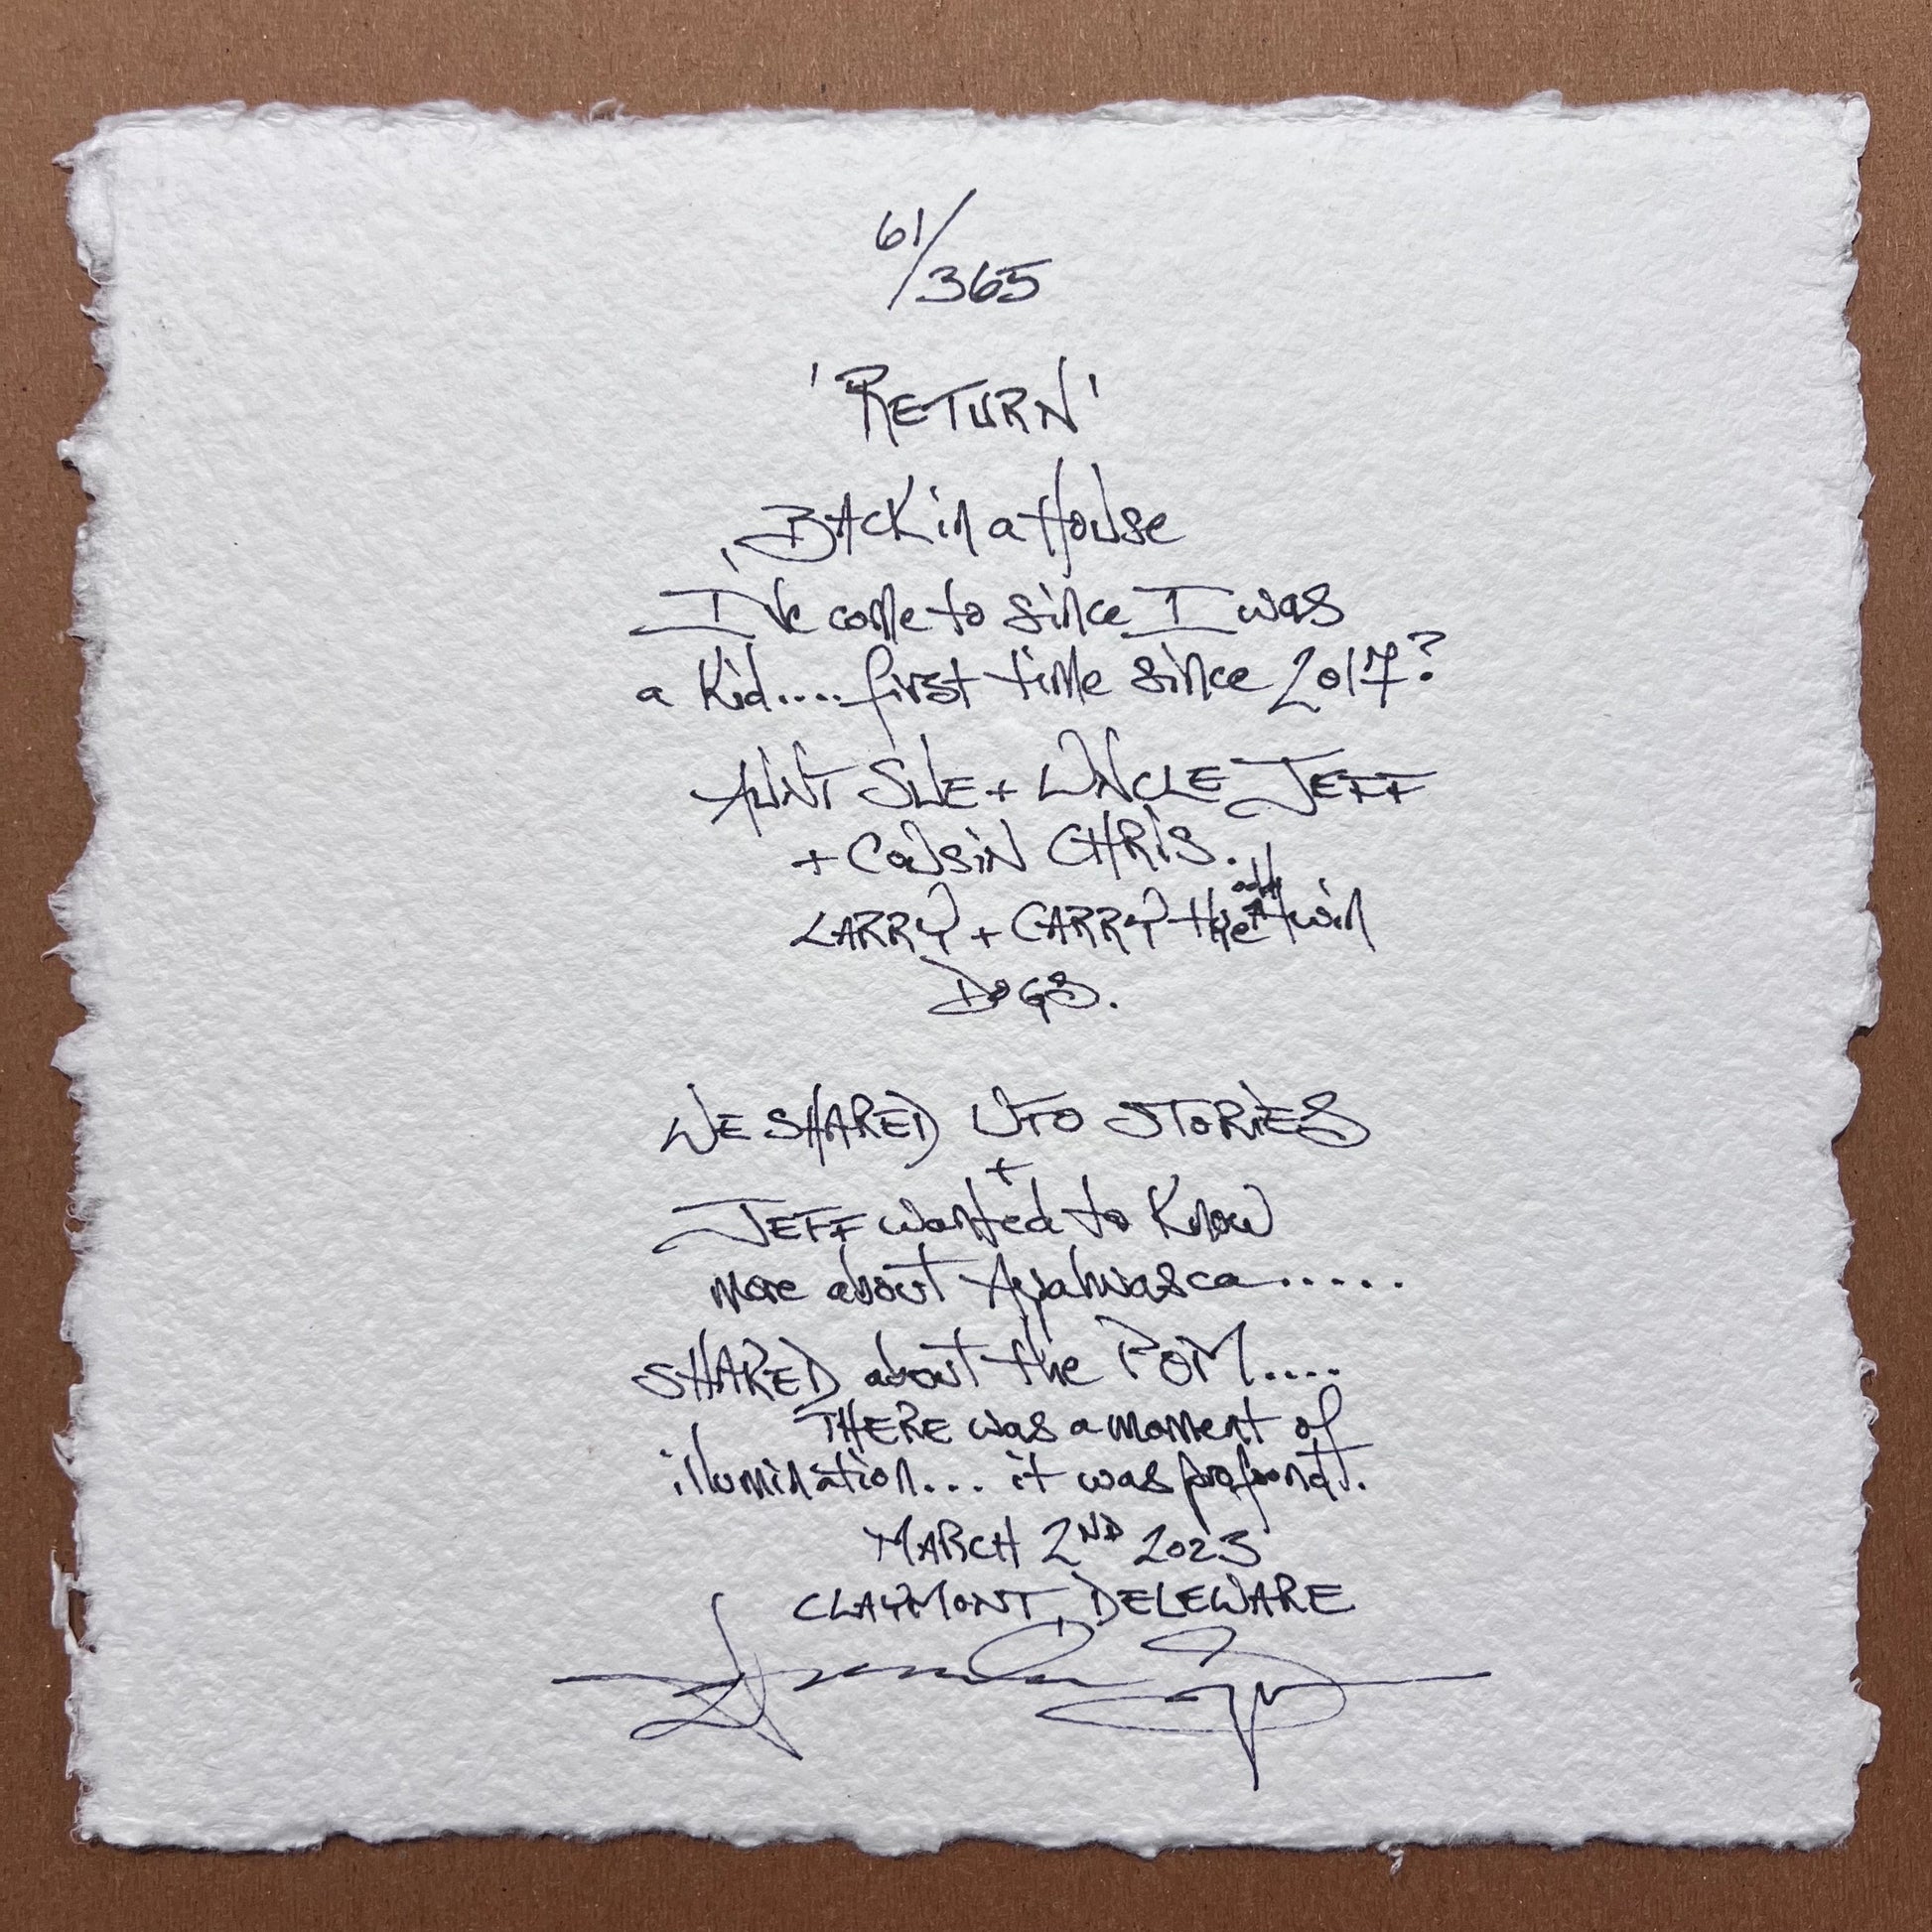 61/365
'RETURN'
BACK in a House
I've come to since I was
a Kid.... first time since 2017?
AUNT SUE + UNCLE JEFF
+ COUSIN CHRIS.
LARRY + GARRY the twin
DOGS.
WE SHARED UFO STORIES
+
JEFF wanted to Know
more about Ayahuasca.....
SHARED about the POM....
THERE was a moment of
illumination... it was profound.
MARCH 2ND 2023
CLAYMONT, DELEWARE